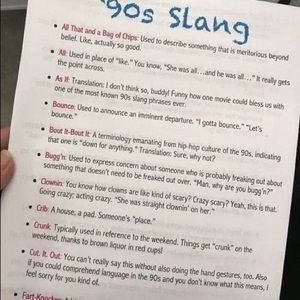 90s Slang
• All That and a Bag of Chips: Used to describe something that is meritorious beyond
belief. Like, actually so good.
• All: Used in place of "like." You know, "She was all...and he was all..." It really gets
the point across.
• As If: Translation: I don't think so, buddy! Funny how one movie could bless us with
one of the most known 90s slang phrases ever.
• Bounce: Used to announce an imminent departure. "I gotta bounce." "Let's
bounce."
• Bout It-Bout It: A terminology emanating from hip-hop culture of the 90s, indicating
that one is "down for anything." Translation: Sure, why not?
• Bugg'n: Used to express concern about someone who is probably freaking out about
something that doesn't need to be freaked out over. "Man, why are you bugg'n?"
• Clownin: You know how clowns are like kind of scary? Crazy scary? Yeah, this is that.
Going crazy; acting crazy. "She was straight clownin' on her."
• Crib: A house, a pad. Someone's "place."
• Crunk: Typically used in reference to the weekend. Things get "crunk" on the
weekend, thanks to brown liquor in red cups!
• Cut. It. Out: You can't really say this without also doing the hand gestures, too. Also
if you could comprehend language in the 90s and you don't know what this means, I
feel sorry for you kind of.
• Fart-Knocker: